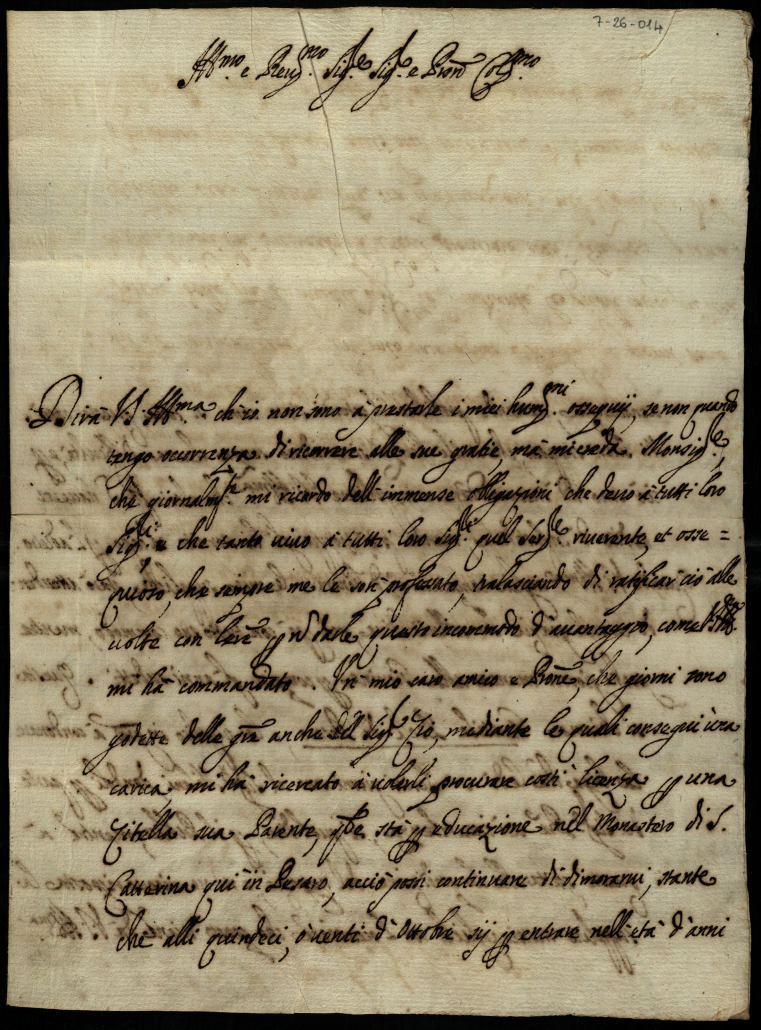 7-26-014
Ill.mo e Rev.mo Sig.e Sig.e e Pron Col.mo
Dirà V.S. Ill.ma ch'io non sono à prestarle i miei hum.mi ossequij, se non quando
tengo ocorrenza di ricorrere alle sue gratie, mà mi creda Monsig.e,
che giornalm.te mi ricordo dell'immense obligazioni che devo à tutti loro
Sig.ri e che tanto vivo à tutti loro Sig.ri quel Ser.e riverente, et osse=
quioso, che sempre me le son professato, tralasciando di ratificar ciò alle
volte con l'ere p n darle questo incommodo d'avantaggio, come V.S. Ill.
mi hà commandato. Un mio caro amico e Prone, che giorni sono
godette delle gre anche del Sig.r Zio, mediante le quali conseguì una
carica, mi hà ricercato à volerli procurare costì licenza p una
Zitella sua Parente, q.le stà p educazione nel Monastero di S.
Catterina qui in Pesaro, acciò possi continuare di dimorarvi, stante
che alli quindeci, ò venti d'Ottobre sij p entrare nell'età d'anni